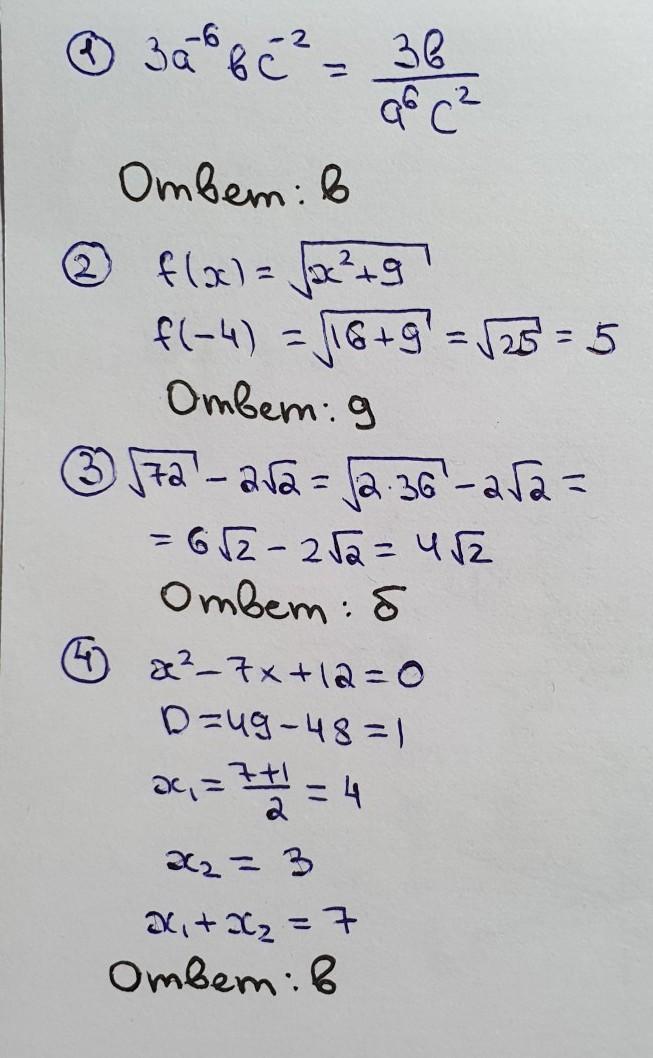 ① 3a⁻⁶ вс⁻² = 3в/(a⁶c²)
Ответ: в
② f(x) = √(x²+9)
f(-4) = √(16+9) = √25 = 5
Ответ: д
③ √72 - 2√2 = √(2·36) - 2√2 =
= 6√2 - 2√2 = 4√2
Ответ: б
④ x² - 7x + 12 = 0
D = 49 - 48 = 1
x₁ = (7+1)/2 = 4
x₂ = 3
x₁ + x₂ = 7
Ответ: в